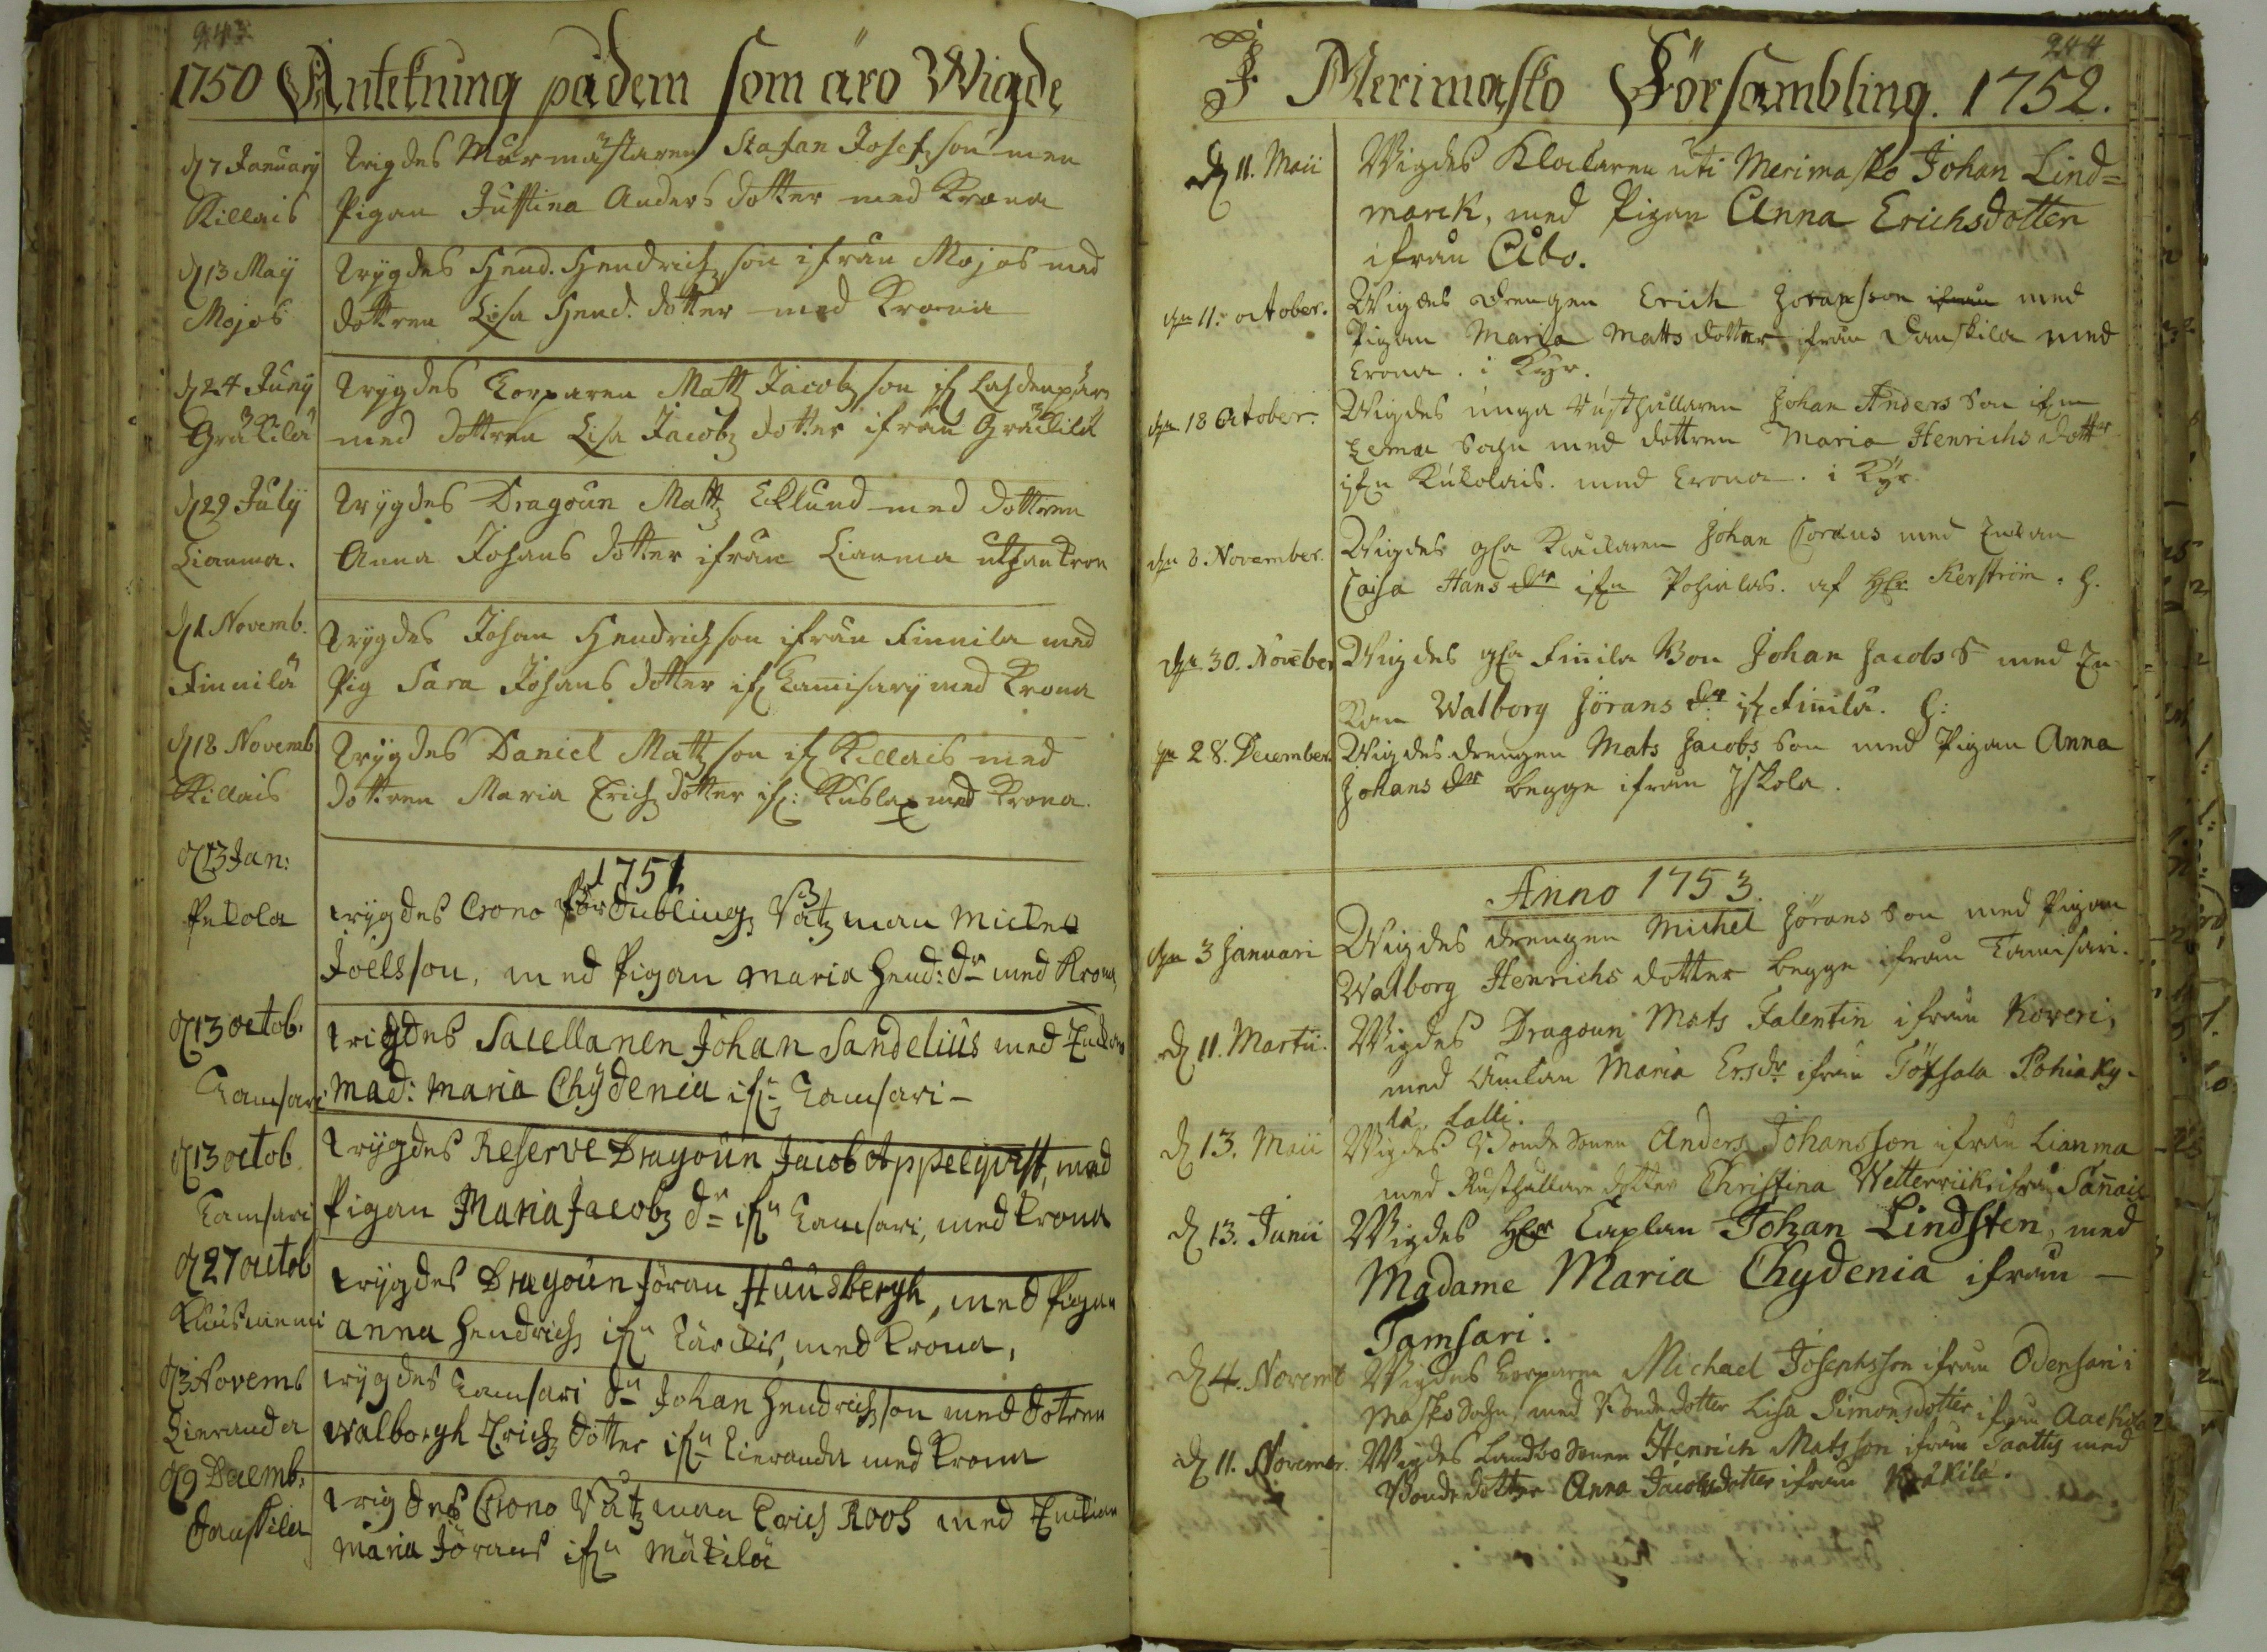 243
1750 Antekning på dem som äro Wigde
d 7 January
Killais
Wigdes Murmästaren Stafan Josefz son men
Pigan Justina Anders dotter med Krona
d 13 May
Mojos
Wygdes Hend. Hendrichz son ifrån Mojos med
dottren Lisa Hend. dotter med Krona
d 24 Juny
Gråkilä
Wygdes Torparen Matz Jacobz son if Lahdenpär
med dottren Lisa Jacobz dotter ifrån Gråkilä
d 29 July
Lianma.
Wygdes Dragoun Matz Eklund med dottren
Anna Johans dotter ifrån Lianma uthan kron
d 1 Novemb.
Finnilä
Wygdes Johan Hendrichz son ifrån Finnila med
Pig Sara Johans dotter if Tamisary med Krona
d 18 Novemb
Killais
Wygdes Daniel Matz son if Killais med
dottren Maria Erichz dotter if: Kuslax med Krona.
1751
d 13 Jan:
Pekola
wygdes Crono för dublings Båtzman Mickel
Joelsson, med Pigan Maria Hend: dr med Krona
d 13 octob.
Tamsari
Wigdes Sacellanen Johan Sandelius med Enkan
Mad: Maria Chydenia ifn Tamsari -
d 13 octob
Tamsari
Wygdes Reserve Dragoun Jacob Appelqvist, med
Pigan Maria Jacobz dr ifn Tamsari, med krona
d 27 octob
Kuusniemi
wygdes Dragoun Jöran Huusbergh, med Pigan
anna Hendrichz ifn Tärckis, med krona,
d 3 Novemb
Lieranda
wygdes Tamsari dn Johan Hendrichz son med dotren
walborgh Erichz dotter ifn Lieranda med krona
d 9 Decemb.
Danskila
wigdes Crono Båtzman Erich Roos med Enkian
maria Jörans ifn Mäkilä
244
I Merimasko Försambling. 1752.
d 11. Maii
Wigdes Klockaren uti Merimasko Johan Lind=
marck, med Pigan Anna Erichsdotter
ifrån Åbo.
den 11. october.
Wigdes drengen Erich Joransson ifrån med
Pigan Maria Matts dotter ifrån Danskila med
Crona. i Kyr.
den 18 October.
Wigdes unga Rusthållaren Johan Anders Son ifrn
Lemu Sohn med dottren Maria Henrichs dottr
ifrn Kukolais. med Crona. i Kyr.
den 8. November.
Wigdes gla Klockaren Johan Corœus med Enkan
Caisa Hans dr ifrn Pohialas. af Hr Kerström. H.
den 30. November
Wigdes gla Finnila Bon Johan Jacobs S med En
kan Walborg Jörans dr if Finnila. H:
den 28. December
Wigdes drengen Mats Jacobs Son med Pigan Anna
Johans dr begge ifrån Iskola.
Anno 1753.
den 3 Januari
Wigdes drengen Michel Jörans Son med Pigan
Walborg Henrichs dotter begge ifrån Tamisari.
d 11. Martii.
Wigdes Dragoun Mats Falentin ifrån Koveri,
med Enkan Maria Ersdr ifrån Töfsala Pohiaky-
la. Lalli.
d 13. Maii
Wigdes Bonde Sonen Anders Johansson ifrån Lianma
med Rusthållare dotter Christina Wetterriik ifrån Sannais
d 13. Junii
Wigdes Hr Caplan Johan Lindsten, med
Madame Maria Chydenia ifrån -
Tamsari.
d 4. Novemb
Wigdes Torparen Michael Josephsson ifrån Odensari i
Masko Sochn med Bonde dotter Lisa Simonsdotter ifrån Aaekola
d 11. November.
Wigdes Landbo Sonen Henrich Matsson ifrån Taattis med
Bonde dotter Anna Jacobsdotter ifrån Kråkilä.